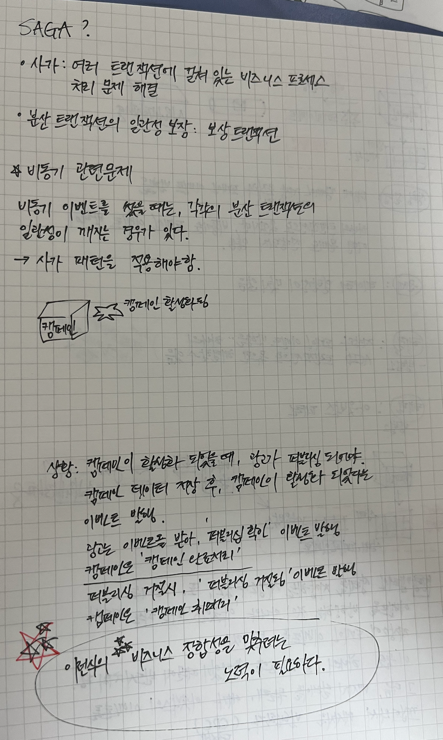 SAGA ?
• 사가 : 여러 트랜잭션에 걸쳐 있는 비즈니스 프로세스
처리 문제 해결
• 분산 트랜잭션의 일관성 보장 : 보상 트랜잭션
* 비동기 관련문제
비동기 이벤트를 썼을 때는, 각각의 분산 트랜잭션의
일관성이 깨지는 경우가 있다.
→ 사가 패턴을 적용해야함.
캠페인 캠페인 활성화됨
상황 : 캠페인이 활성화 되었을 때, 광고가 퍼블리싱 되어야.
캠페인 데이터 저장 후, 캠페인이 활성화 되었다는
이벤트 발행.
광고는 이벤트를 받아, '퍼블리싱 확인' 이벤트 발행
캠페인은 '캠페인 완료처리'
퍼블리싱 거절시, '퍼블리싱 거절됨' 이벤트 발행
캠페인은 '캠페인 취소처리'
이런식의 비즈니스 정합성을 맞추려는
노력이 필요하다.